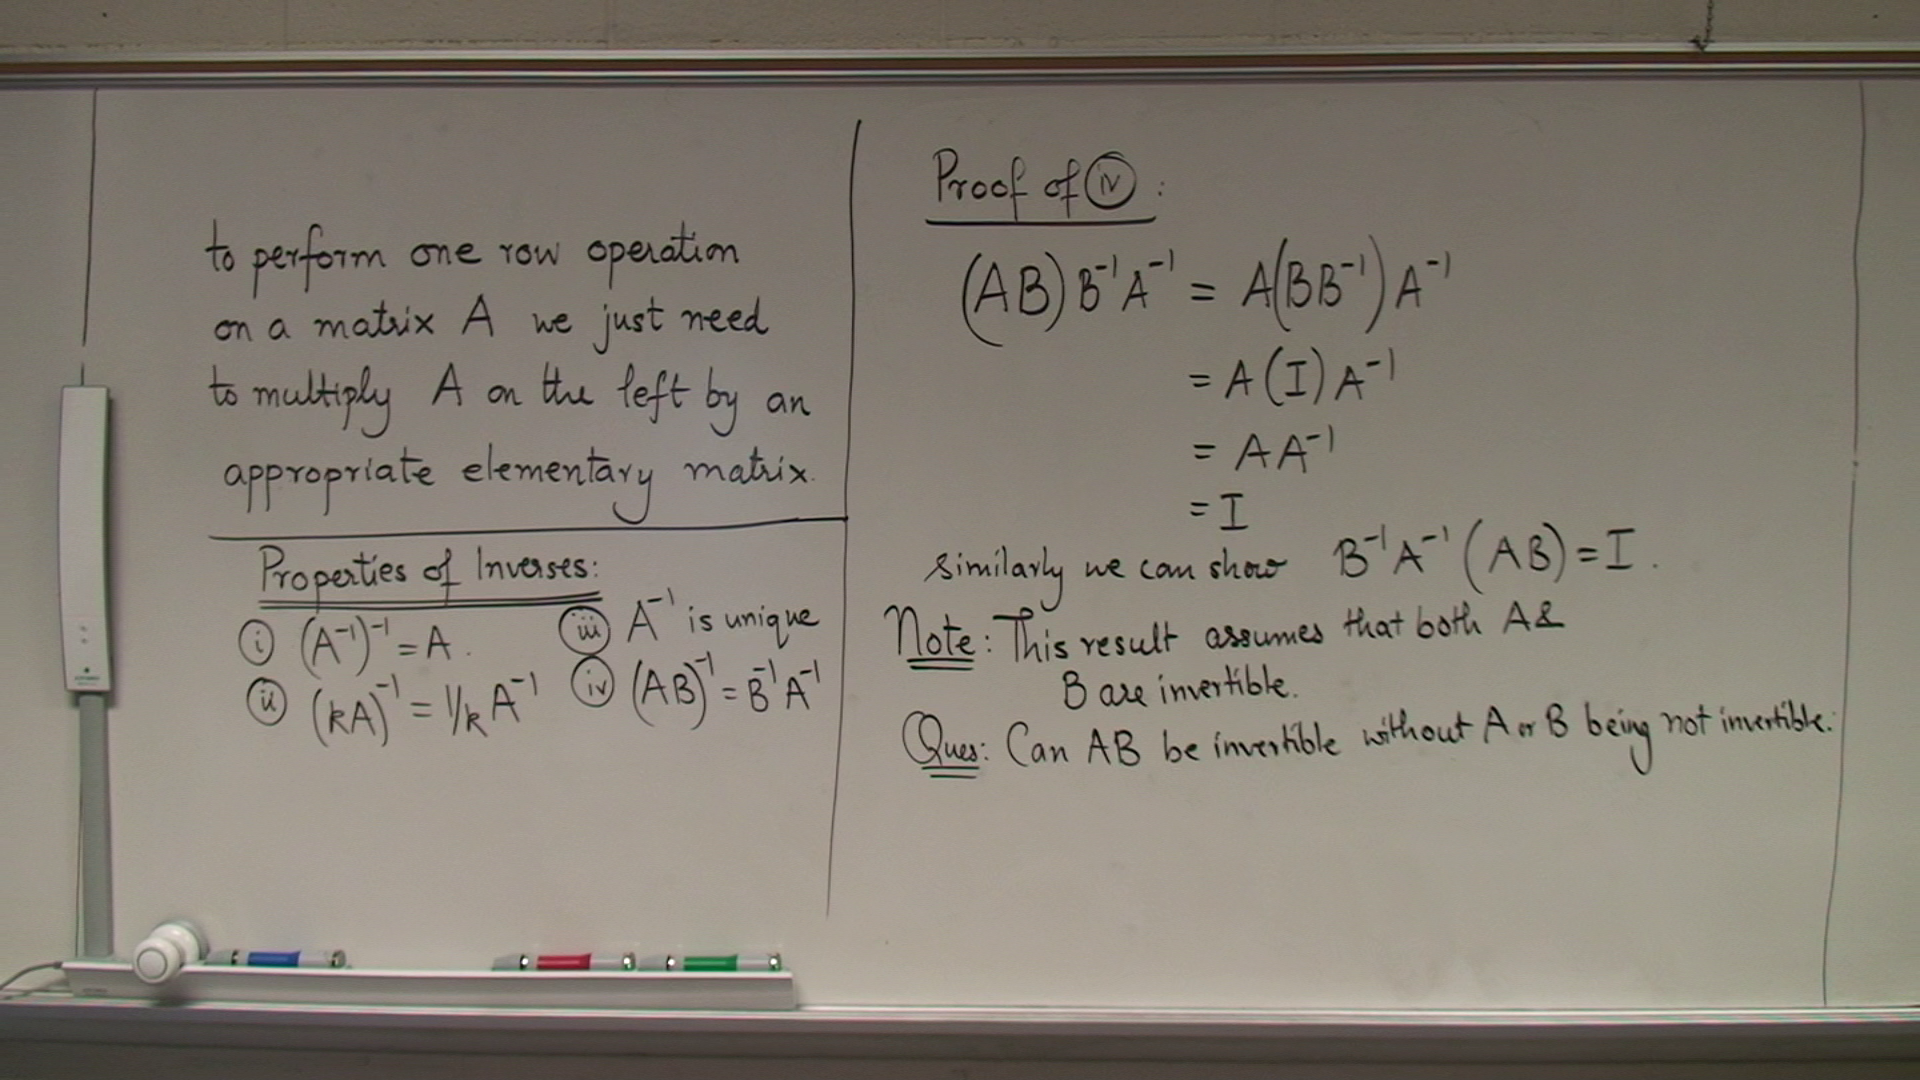 to perform one row operation
on a matrix A we just need
to multiply A on the left by an
appropriate elementary matrix.
Properties of Inverses:
(i) (A⁻¹)⁻¹ = A.
(ii) (kA)⁻¹ = 1/k A⁻¹
(iii) A⁻¹ is unique
(iv) (AB)⁻¹ = B⁻¹A⁻¹
Proof of (iv):
(AB) B⁻¹A⁻¹ = A(BB⁻¹) A⁻¹
= A (I) A⁻¹
= A A⁻¹
= I
Similarly we can show B⁻¹A⁻¹ (AB) = I.
Note: This result assumes that both A &
B are invertible.
Ques: Can AB be invertible without A or B being not invertible.